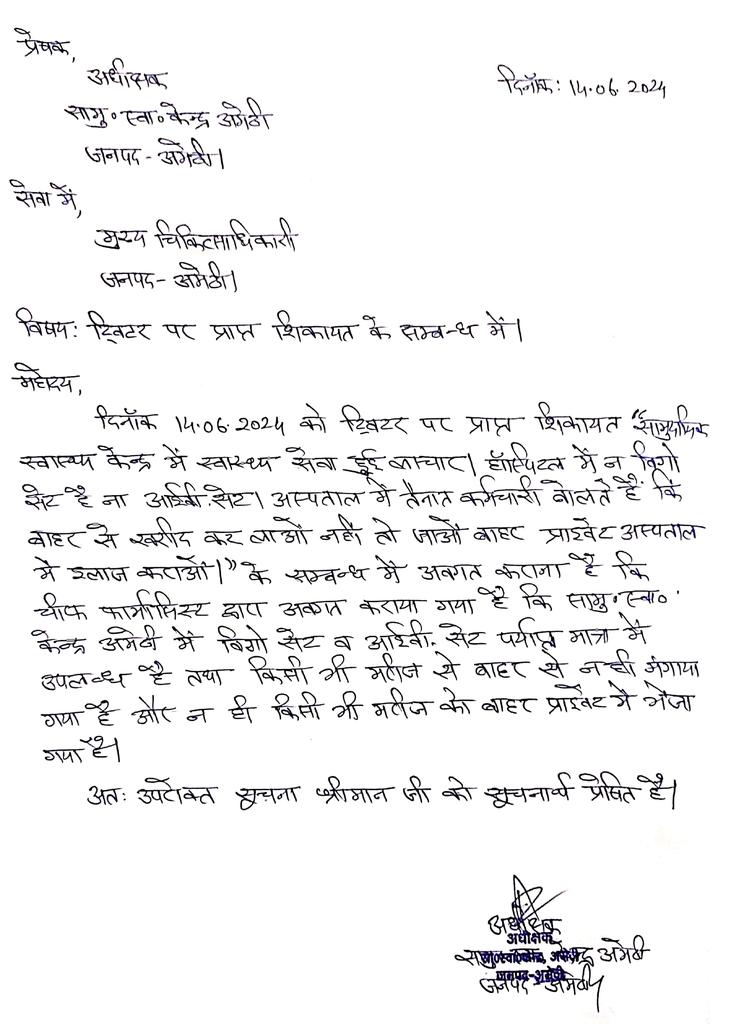 प्रेषक,
अधीक्षक
दिनाँक: 14.06.2024
सामु० स्वा० केन्द्र अमेठी
जनपद - अमेठी।
सेवा में,
मुख्य चिकित्साधिकारी
जनपद - अमेठी।
विषय: ट्विटर पर प्राप्त शिकायत के सम्बन्ध में।
महोदय,
दिनाँक 14.06.2024 को ट्विटर पर प्राप्त शिकायत "सामुदायिक
स्वास्थ्य केन्द्र में स्वास्थ्य सेवा हुई लाचार। हॉस्पिटल में न विगो
सेट है ना आईवी. सेट। अस्पताल में तैनात कर्मचारी बोलते हैं कि
बाहर से खरीद कर लाओं नहीं तो जाओं बाहर प्राइवेट अस्पताल
में इलाज कराओं।" के सम्बन्ध में अवगत कराना है कि
चीफ फार्मासिस्ट द्वारा अवगत कराया गया है कि सामु० स्वा०
केन्द्र अमेठी में विगो सेट व आईवी. सेट पर्याप्त मात्रा में
उपलब्ध है तथा किसी भी मरीज से बाहर से न ही मंगाया
गया है और न ही किसी भी मरीज को बाहर प्राईवेट में भेजा
गया है।
अतः उपरोक्त सूचना श्रीमान जी को सूचनार्थ प्रेषित है।
अधीक्षक
अधीक्षक
सामु० स्वा० केन्द्र अमेठी
जनपद-अमेठी
जनपद - अमेठी